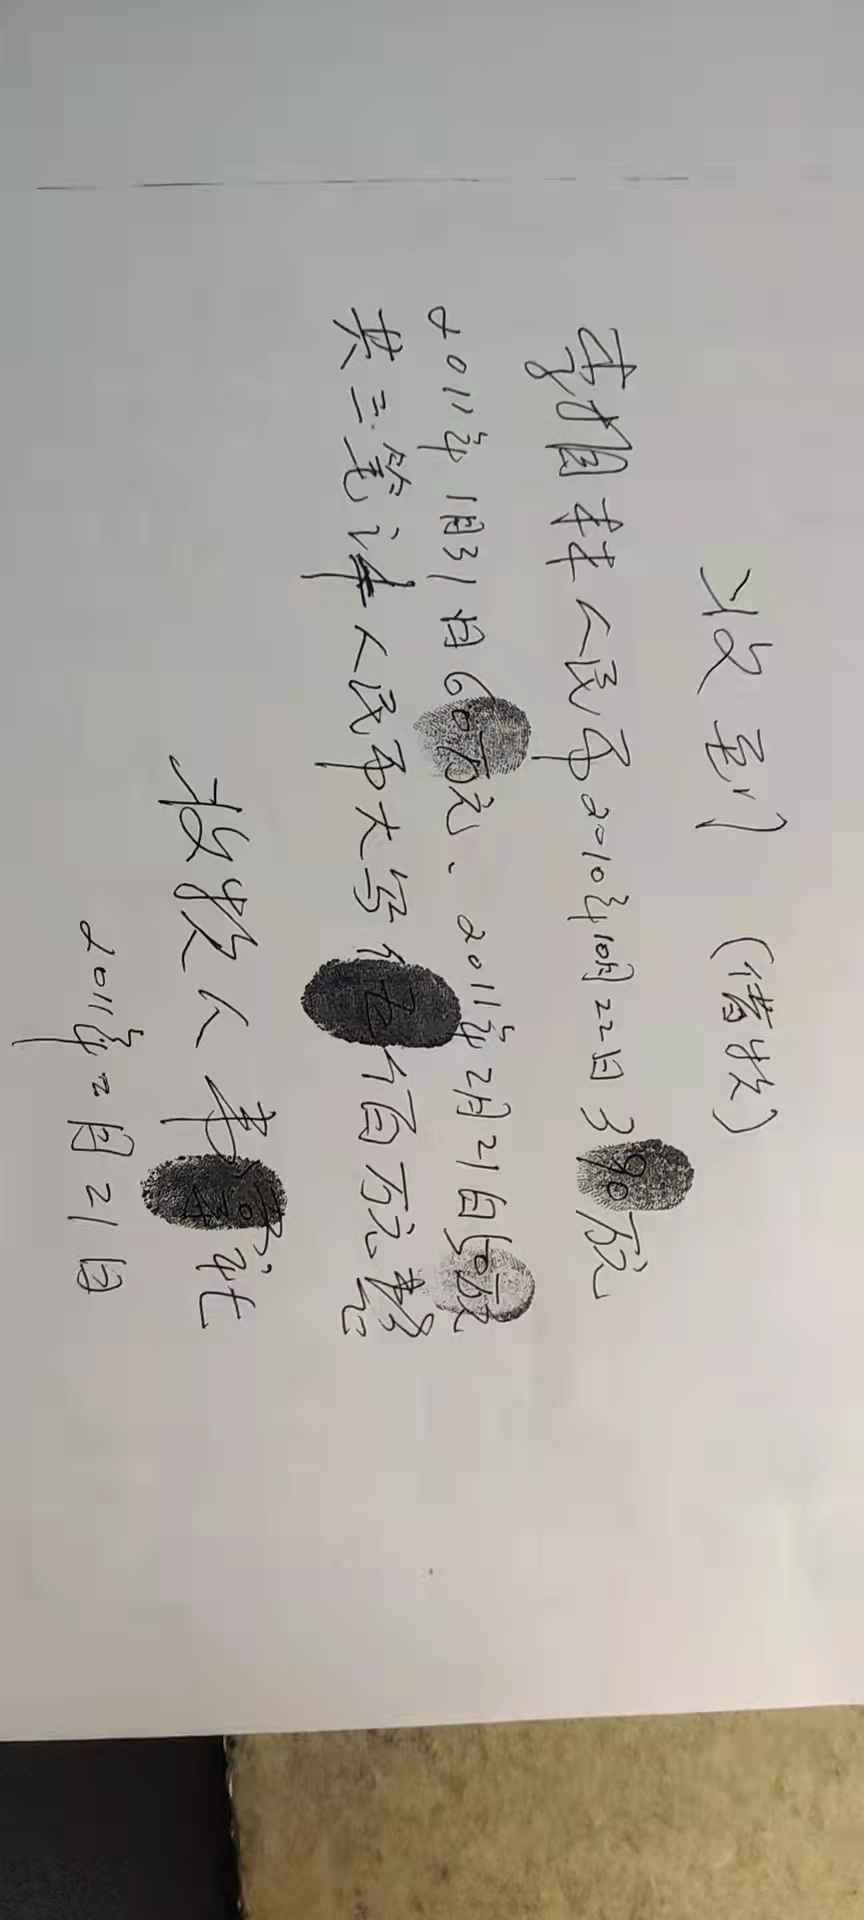 收到 (借款)
李相林人民币2010年10月22日390万元
2011年1月31日60万元、2011年2月21日50万元
共三笔计人民币大写伍佰万元整
收款人
2011年2月21日